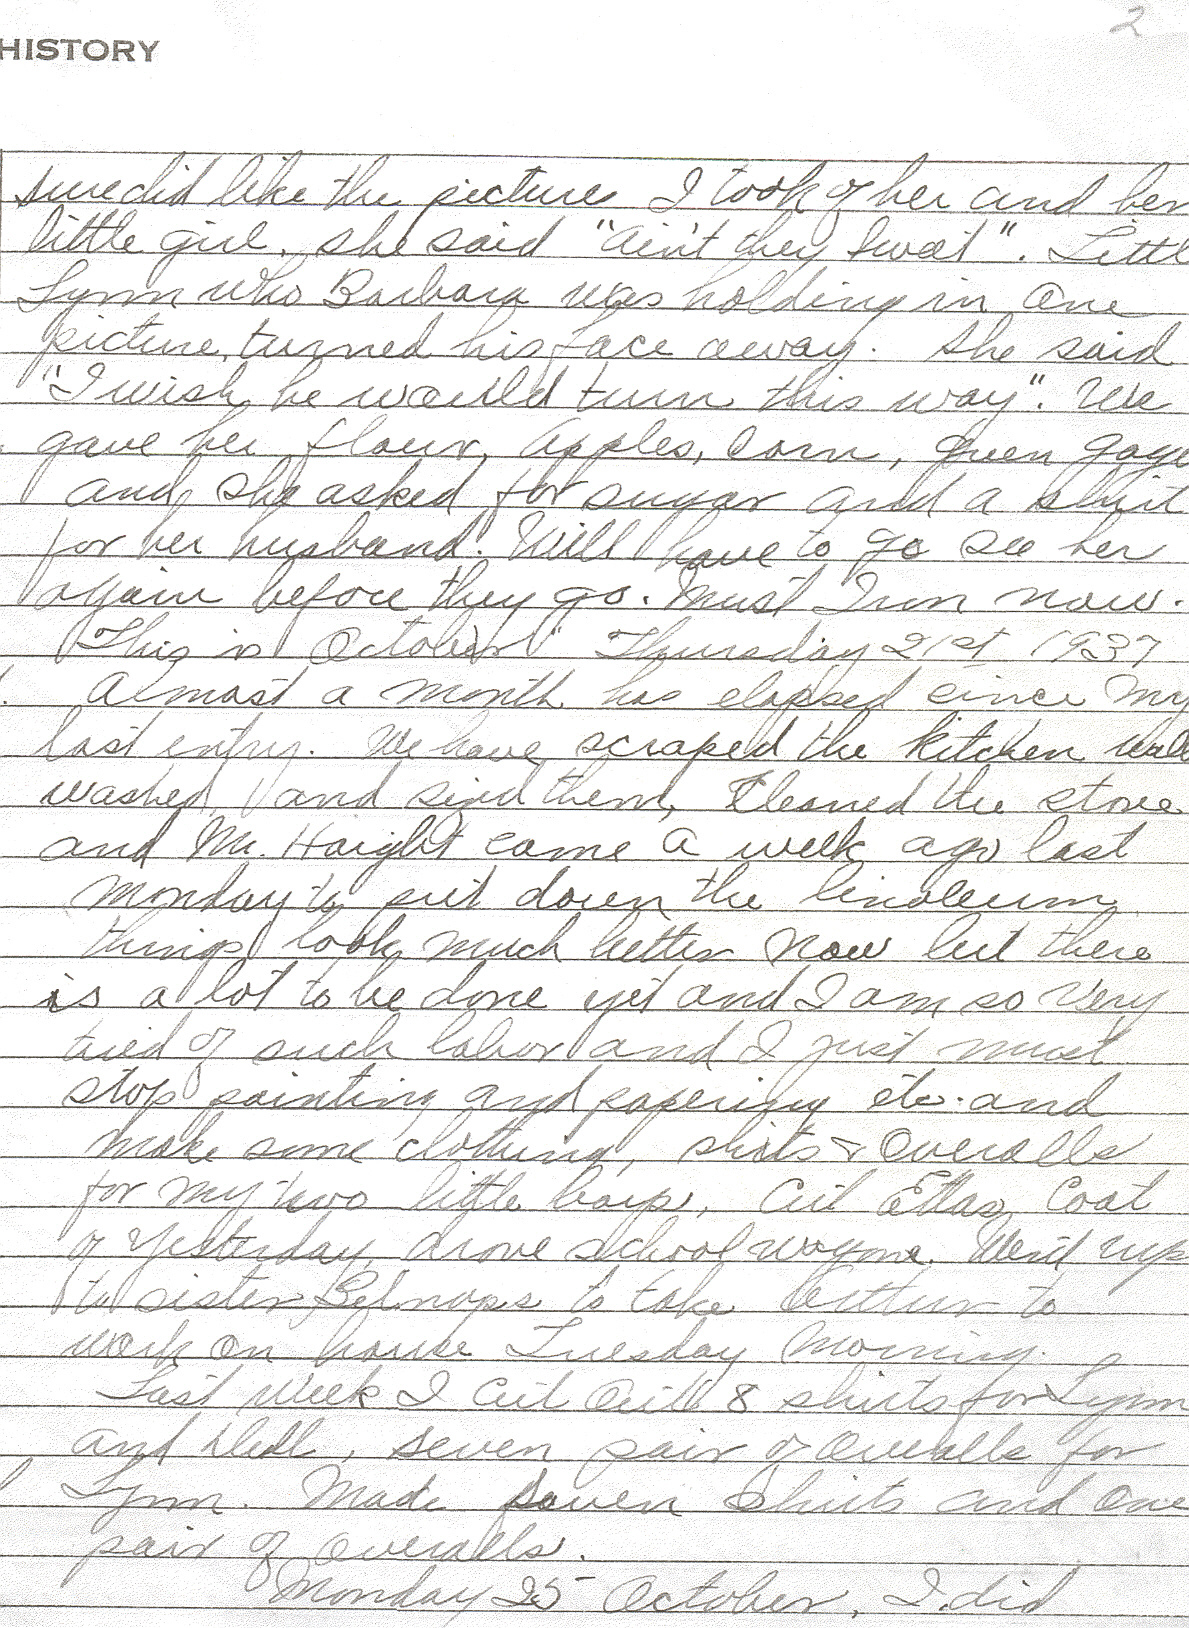 2
HISTORY
sure did like the picture I took of her and her
little girl. she said "ain't they sweet". Littl
Lynn who Barbara was holding in one
picture, turned his face away. She said
"I wish he would turn this way". We
gave her flour, apples, corn, green gage
and she asked for sugar and a shirt
for her husband. Will have to go see her
again before they go. Must Iron now.
This is October" Thursday 21st 1937
Almost a month has elapsed since My
last entry. We have scraped the kitchen wall
washed and sized them, Cleaned the stove
and Mr. Haight came a week ago last
Monday to put down the linoleum
things look much better now but there
is a lot to be done yet and I am so very
tired of such labor and I just must
stop painting and papering etc. and
make some clothing, shirts & overalls
for my two little boys, Cut Ettas Coat
yesterday, drove school wagon. Went up
to sister Belnaps to take to
work on house Tuesday Morning.
Last Week I Cut Out 8 shirts for Lynn
and Dell, seven pair of overalls for
Lynn. Made seven shirts and one
pair of overalls.
Monday 25 October, I did